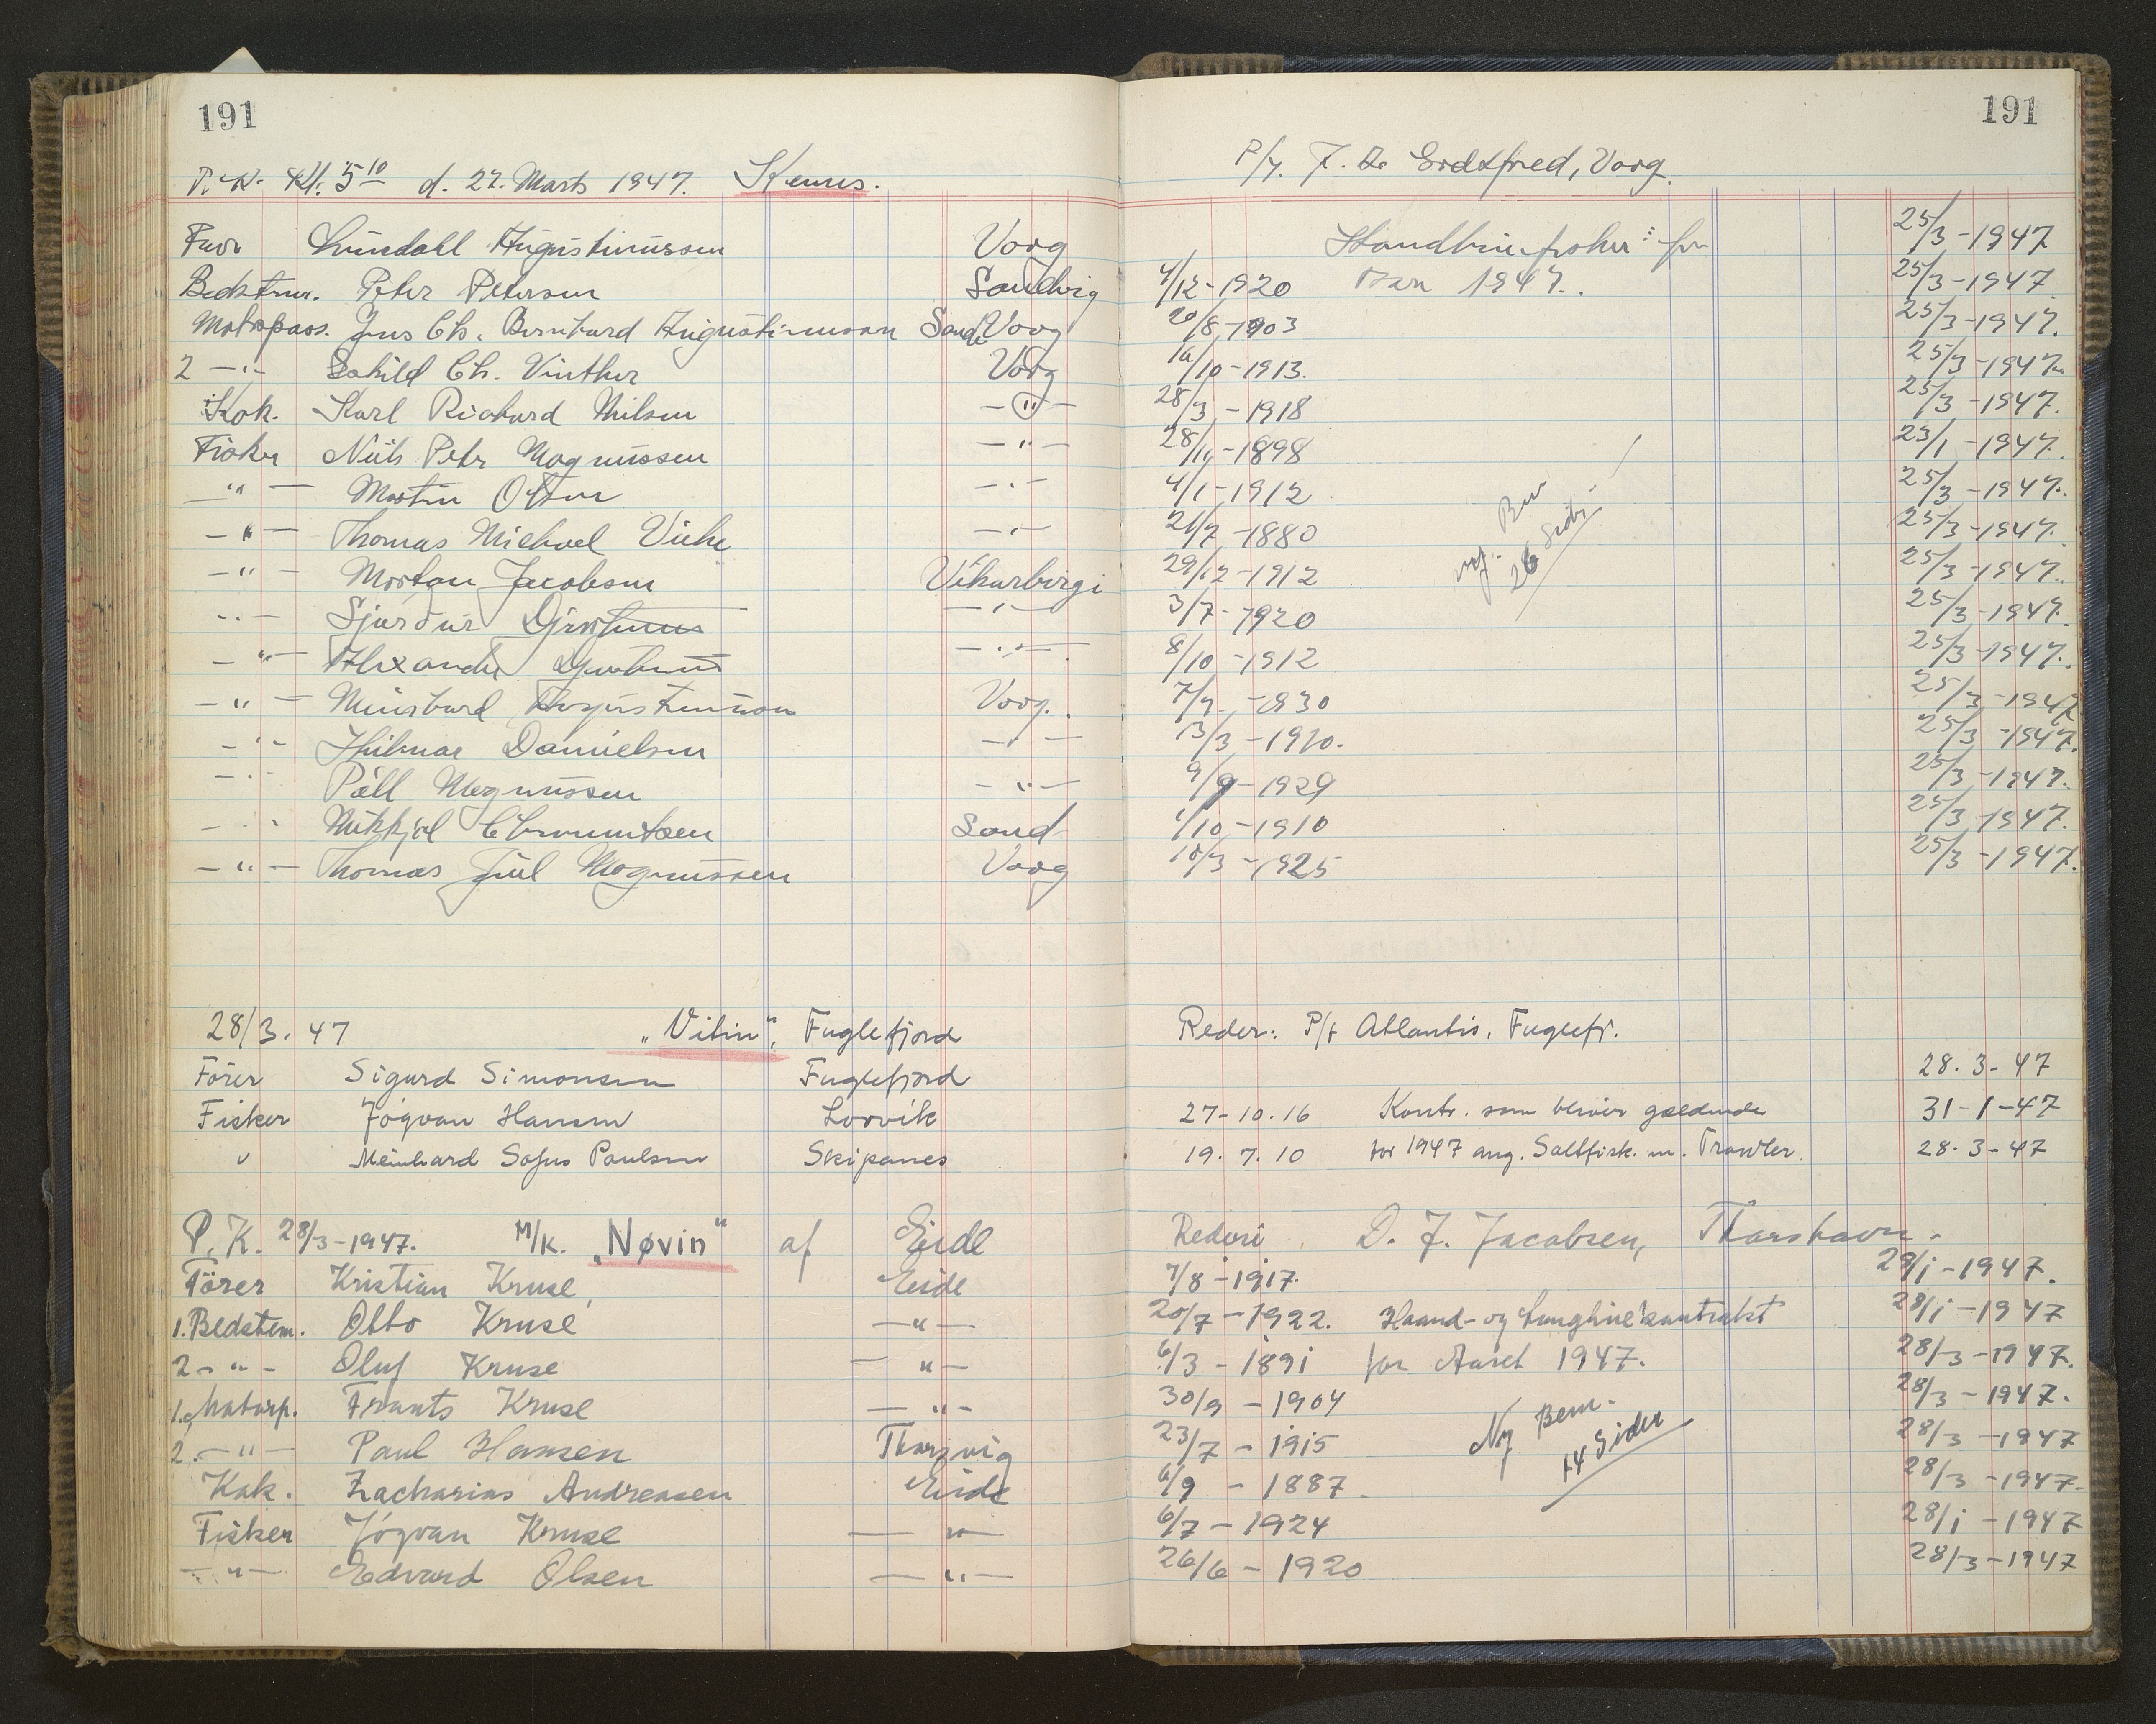 191
191
P. K. Kl. 5 10 d. 27. Marts 1947. Kenus.
P/f. J. Vaag.
Augustinussen Vaag Haandlineforhyr: for 25/3-1947
Bedstm. Peter Petersen Sandvig 4/12-1920 1947. 25/3-1947
Motorpass. Jens Chr. Bernhard Augustinussen Vaag 20/8-1903 25/3-1947.
2 -"- Ch. Vinther Vaag 16/10-1913. 25/3-1947.
Kok. Karl Richard Nilsen -"- 28/3-1918 25/3-1947.
Fisker Niels Peter Magnussen -"- 28/11-1898 23/1-1947.
-"- Martin -"- 4/1-1912 25/3-1947.
-"- Thomas Michael -"- 21/7-1880 25/3-1947.
-"- Mortan Jacobsen Vikarbirgi 29/12-1912 25/3-1947.
-"- Sjurður -"- 3/7-1920 25/3-1947.
-"- Alexander -"- 8/10-1912 25/3-1947.
-"- Meinhard Augustinussen Vaag. 7/7-1930 25/3-1947
-"- Hilmar Danielsen -"- 13/3-1910. 25/3-1947.
-"- Páll Magnussen -"- 9/9-1929 25/3-1947.
-"- Mikkjal Sand 1/10-1910 25/3-1947.
-"- Thomas Juul Magnussen Vaag 10/3-1925 25/3-1947.
Bem
26 Sider
28/3. 47 „Vitin". Fuglefjord Reder: P/f Atlantis. Fuglefj.
Förer Sigurd Simonsen Fuglefjord 28. 3- 47
Fisker Jógvan Hansen Lorvik 27-10.16 Kontr. som bliver gældende 31-1-47
" Meinhard Sofus Poulsen Skipanes 19. 7. 10 for 1947 ang. Saltfisk. m. Trawler. 28. 3-47
P. K. 28/3-1947. M/K. „Nøvin" af Eide Rederi D. J. Jacobsen, Thorshavn.
Förer Kristian Kruse, Eide 7/8-1917. 29/1-1947.
1. Bedstem. Otto Kruse -"- 20/7-1922. Haand- og Langlinekontrakt 28/1-1947
2 -"- Oluf Kruse -"- 6/3-1891 for Aaret 1947. 28/3-1947.
1. Motorp. Frants Kruse -"- 30/9-1904 28/3-1947.
2. -"- Paul Hansen Thorsvig 23/7-1915 28/3-1947
Kok. Zacharias Andreasen Eide 6/9-1887. 28/3-1947.
Fisker Jógvan Kruse -"- 6/7-1924 28/1-1947
-"- Edvard Olsen -"- 26/6-1920 28/3-1947
Ny Bem.
14 Sider